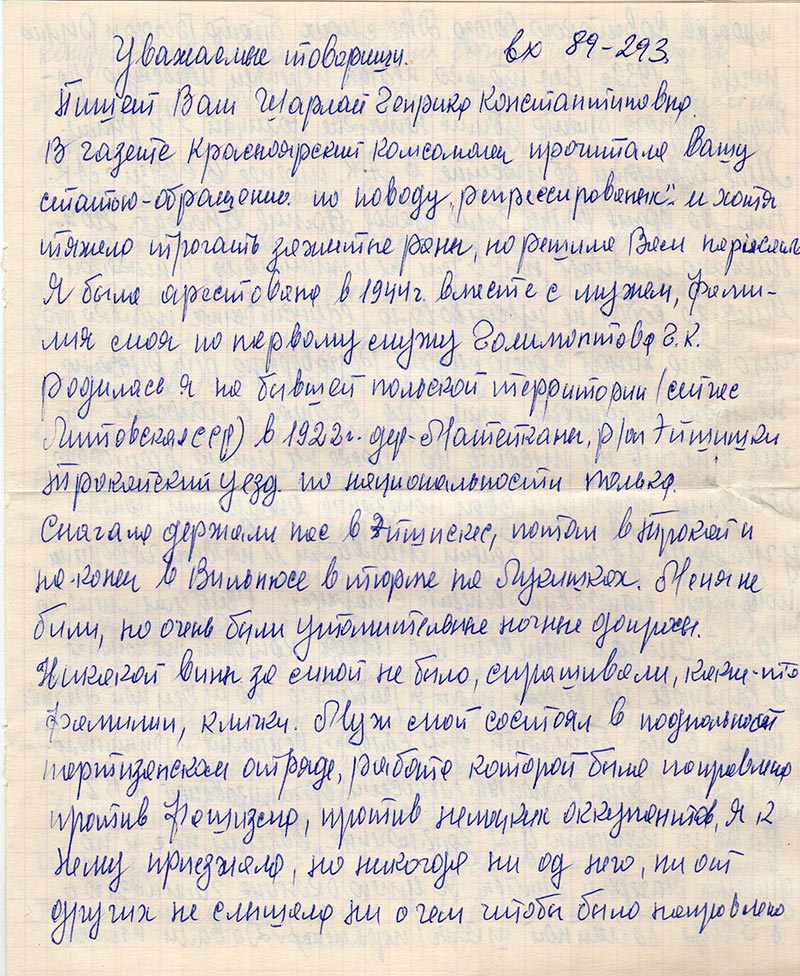 Уважаемые товарищи. вх 89-293
Пишет Вам Шарлай Генрика Константиновна.
В газете Красноярский Комсомолец прочитала Вашу
статью-обращение. по поводу „репрессированных" и хотя
тяжело трогать зажитые раны, но решила Вам написать
Я была арестована в 1944г. вместе с мужем, фами-
лия моя по первому мужу Голимонтова Г.К.
родилась я на бывшей польской территории (сейчас
Литовская ССР) в 1922г. дер-Матейканы, р/он Эйшишки
Тракайский уезд. по национальности полька.
Сначала держали нас в Эйшишкес, потом в Тракай и
на-конец в Вильнюсе в тюрме на Лукишках. Меня не
били, но очень были утомительные ночные допросы.
Никакой вины за мной не было, спрашивали, какие-то
фамилии, клички. Муж мой состоял в подпольном
партизанском отряде, работа которой была направлена
против Фашизма, против немецких оккупантов, Я к
нему приезжала, но никогда ни од него, ни от
других не слышала ни о чем чтобы было направлено